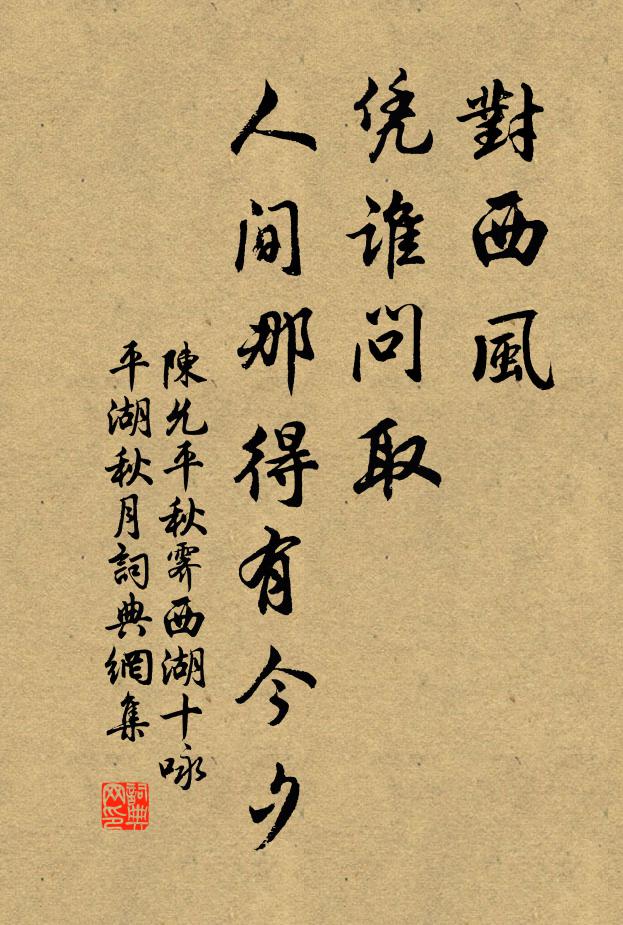 對西風
凭誰問取
人間那得有今夕
陳允平秋霽西湖十咏
平湖秋月詞典網集
詞典网印